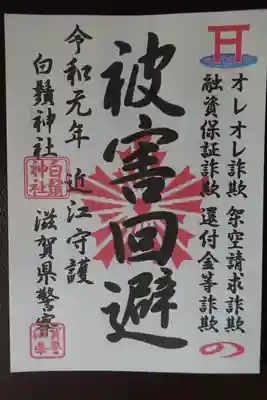 オレオレ詐欺 架空請求詐欺
融資保証詐欺 還付金等詐欺
の
被害回避
令和元年 近江守護
白鬚神社 滋賀県警察
白鬚神社